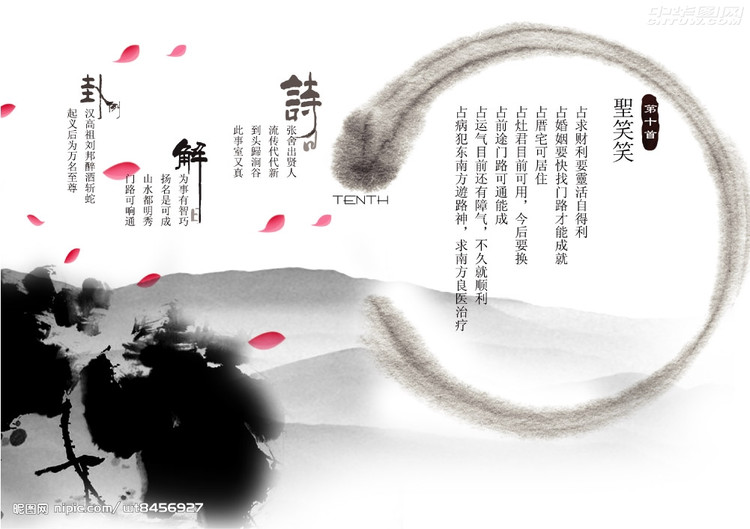 中华图网
WWW.CNTUW.COM
第十首
聖笑笑
占求财利要靈活自得利
占婚姻要快找门路才能成就
占厝宅可居住
占灶君目前可用，今后要换
占前途门路可通能成
占运气目前还有障气，不久就顺利
占病犯东南方遊路神，求南方良医治疗
TENTH
詩曰
张舍出贤人
流传代代新
到头歸涧谷
此事室又真
解曰
为事有智巧
扬名是可成
山水都明秀
门路可响通
卦例
汉高祖刘邦醉酒斩蛇
起义后为万名至尊
昵图网 nipic.com/wt8456927